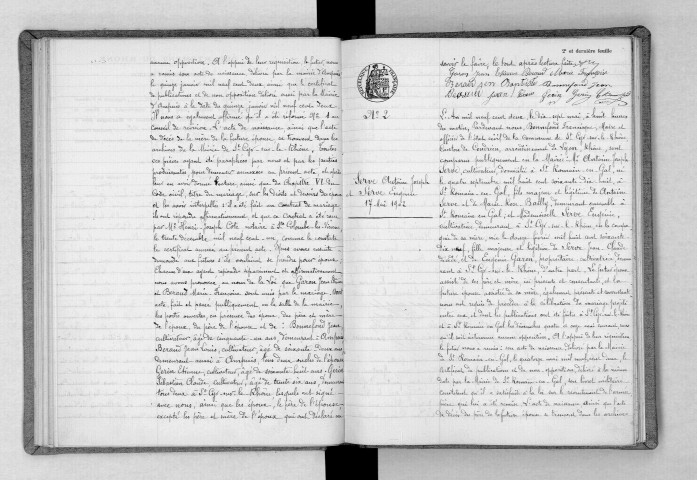 aucune opposition. A l'appui de leur réquisition le futur nous
a remis son acte de naissance délivré par la mairie d'Ampuis
le quinze janvier mil neuf cent deux ainsi que le certificat
de publications et de non opposition délivré aussi par la mairie
d'Ampuis à la date du quinze janvier mil neuf cent deux
Il nous a également affirmé qu'il a été réformé
conseil de révision. L'acte de naissance ainsi que l'acte
de décès de la mère de la future épouse, se trouvent dans les
archives de la Mairie de St Cyr-sur-le-Rhône. Toutes
ces pièces ayant été paraphées par nous et par les parties
produisantes pour demeurer annexées au présent acte, et après
leur en avoir donné lecture, ainsi que du Chapitre VI du
Code civil, titre du mariage, sur les droits et devoirs des époux
et les avoir interpellés s'il a été fait un contrat de mariage,
ils ont répondu affirmativement, et que ce Contrat a été reçu
par Me Henri Joseph Cote notaire à Ste Colombe-lès-Vienne
le trente décembre mil neuf cent un, comme le constate
le certificat annexé au présent acte. Nous avons ensuite
demandé aux futurs s'ils veulent se prendre pour époux.
Chacun d'eux ayant répondu séparément et affirmativement
nous avons prononcé, au nom de la Loi que Garon Jean
et Beraud Marie Françoise sont unis par le mariage. Cet
acte, fait et passé publiquement en la salle de la mairie,
les portes ouvertes, en présence des époux, des père et mère
de l'époux, du père de l'épouse, et de : Bonnefond Jean
cultivateur, âgé de cinquante ans, demeurant à Ampuis
Beraud Jean Louis, cultivateur, âgé de soixante deux ans
demeurant aussi à Ampuis, tous deux oncles de l'épouse
Gerin Etienne, cultivateur, âgé de soixante huit ans
Sébastien Claude cultivateur, âgé de trente six ans, demeurant
tous deux à St Cyr-sur-le-Rhône lesquels ont signé
avec nous, ainsi que les époux, le père de l'épouse
excepté les père et mère de l'époux qui ont déclaré ne
2e et dernière feuille
savoir le faire, le tout après lecture faite.
Garon Jean Beraud Marie Françoise
Beraud Bonnefond Jean
Beraud Jean Louis Gerin
No 2
Serve Antoine Joseph
et Serve Eugénie
17 Mai 1902
L'An mil neuf cent deux, le dix sept mai, à huit heures
du matin, Pardevant nous, Bonnefond Francisque, Maire et
officier de l'état civil de la commune de St Cyr-sur-le-Rhône
Canton de Condrieu, arrondissement de Lyon, Rhône, sont
comparus publiquement en la Mairie : Mr Antoine Joseph
Serve, cultivateur, domicilié à St Romain-en-Gal, né
le quatre septembre mil huit cent soixante dix huit, à
St Romain-en-Gal, fils majeur et légitime de Antoine
Serve et de Marie Rose Bailly, demeurant ensemble à
St Romain-en-Gal, et Mademoiselle Serve Eugénie,
cultivatrice, demeurant à St Cyr-sur-le-Rhône en la compagnie
de sa mère, née le douze février mil huit cent
fille majeure, et légitime de Serve Jean Claude
décédé, et de Eugénie Garon, propriétaire cultivatrice, demeurant
à St Cyr-sur-le-Rhône, d'autre part. Le futur époux
assisté de ses père et mère, ici présents et consentants, et la
future épouse assistée de sa mère, également présente et consentante
nous ont requis de procéder à la célébration du mariage projeté
entre eux, et dont les publications ont été faites à St Cyr-sur-le-Rhône
et à St Romain-en-Gal les dimanches quatre et onze mai courant, sans
qu'il soit intervenu aucune opposition. A l'appui de leur réquisition
le futur nous a remis : son acte de naissance délivré par la Mairie
de St Romain-en-Gal, le quatorze mai mil neuf cent deux, le
certificat de publications et de non-opposition, délivré à la même
date par la Mairie de St Romain-en-Gal, son livret militaire
constatant qu'il a satisfait à la loi sur le recrutement de l'armée
pièce qui lui a été remise. L'acte de naissance ainsi que l'acte
de décès du père de la future épouse se trouvent dans les archives